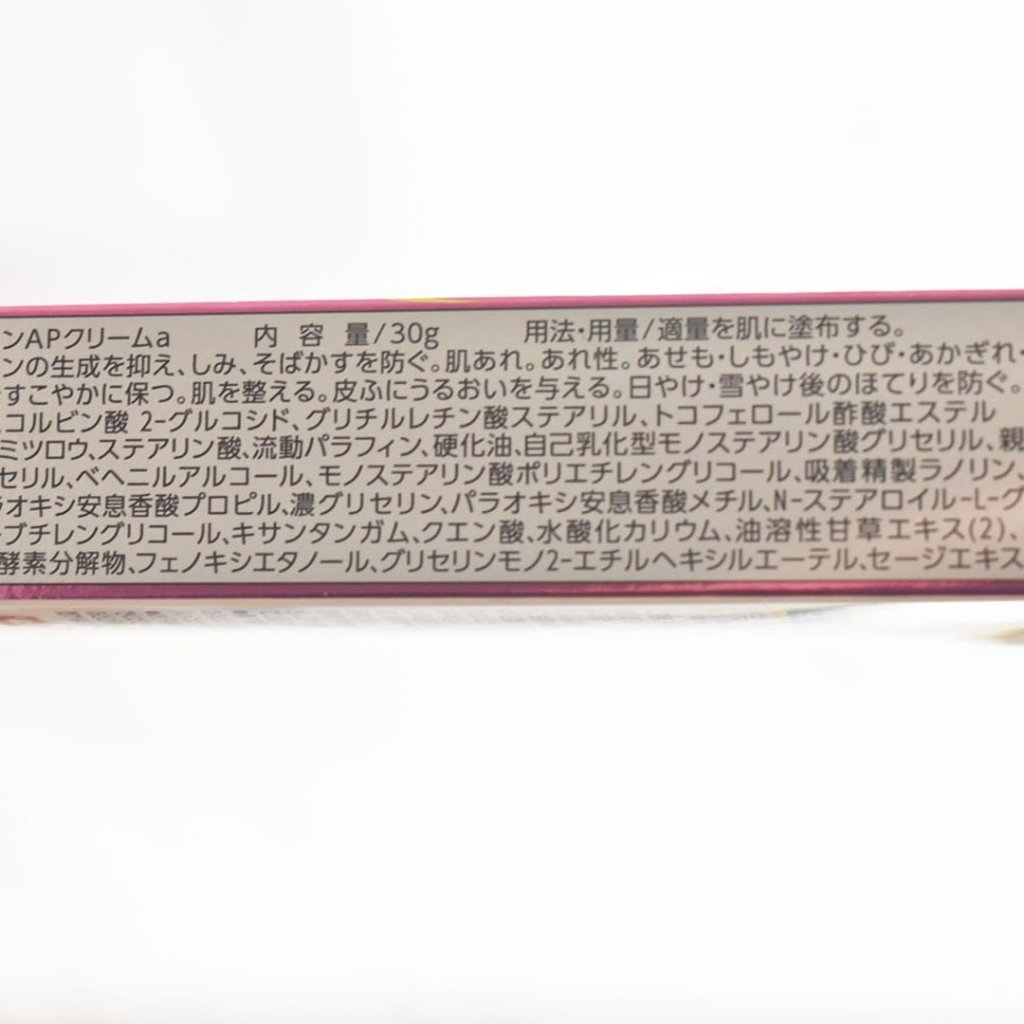 ンAPクリームa 内容量/30g 用法・用量/適量を肌に塗布する。
ンの生成を抑え、しみ、そばかすを防ぐ。肌あれ。あれ性。あせも・しもやけ・ひび・あかぎれ・
すこやかに保つ。肌を整える。皮ふにうるおいを与える。日やけ・雪やけ後のほてりを防ぐ。
コルビン酸 2-グルコシド、グリチルレチン酸ステアリル、トコフェロール酢酸エステル
ミツロウ、ステアリン酸、流動パラフィン、硬化油、自己乳化型モノステアリン酸グリセリル、親
セリル、ベヘニルアルコール、モノステアリン酸ポリエチレングリコール、吸着精製ラノリン、
オキシ安息香酸プロピル、濃グリセリン、パラオキシ安息香酸メチル、N-ステアロイル-L-グ
ブチレングリコール、キサンタンガム、クエン酸、水酸化カリウム、油溶性甘草エキス(2)、
酵素分解物、フェノキシエタノール、グリセリンモノ2-エチルヘキシルエーテル、セージエキス